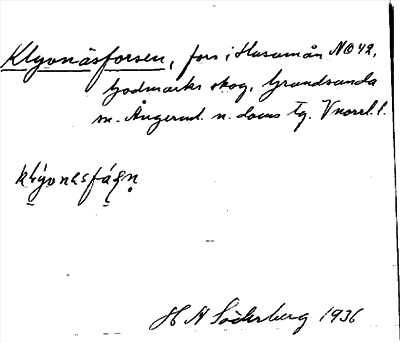 Klyvnäsforsen, fors i Husumån NO 42,
Godmarks skog, Grundsunda
sn. Ångerml. n. doms tg. Vnorrl. l.
klývnesfáʂn̥
H A Söderberg 1936